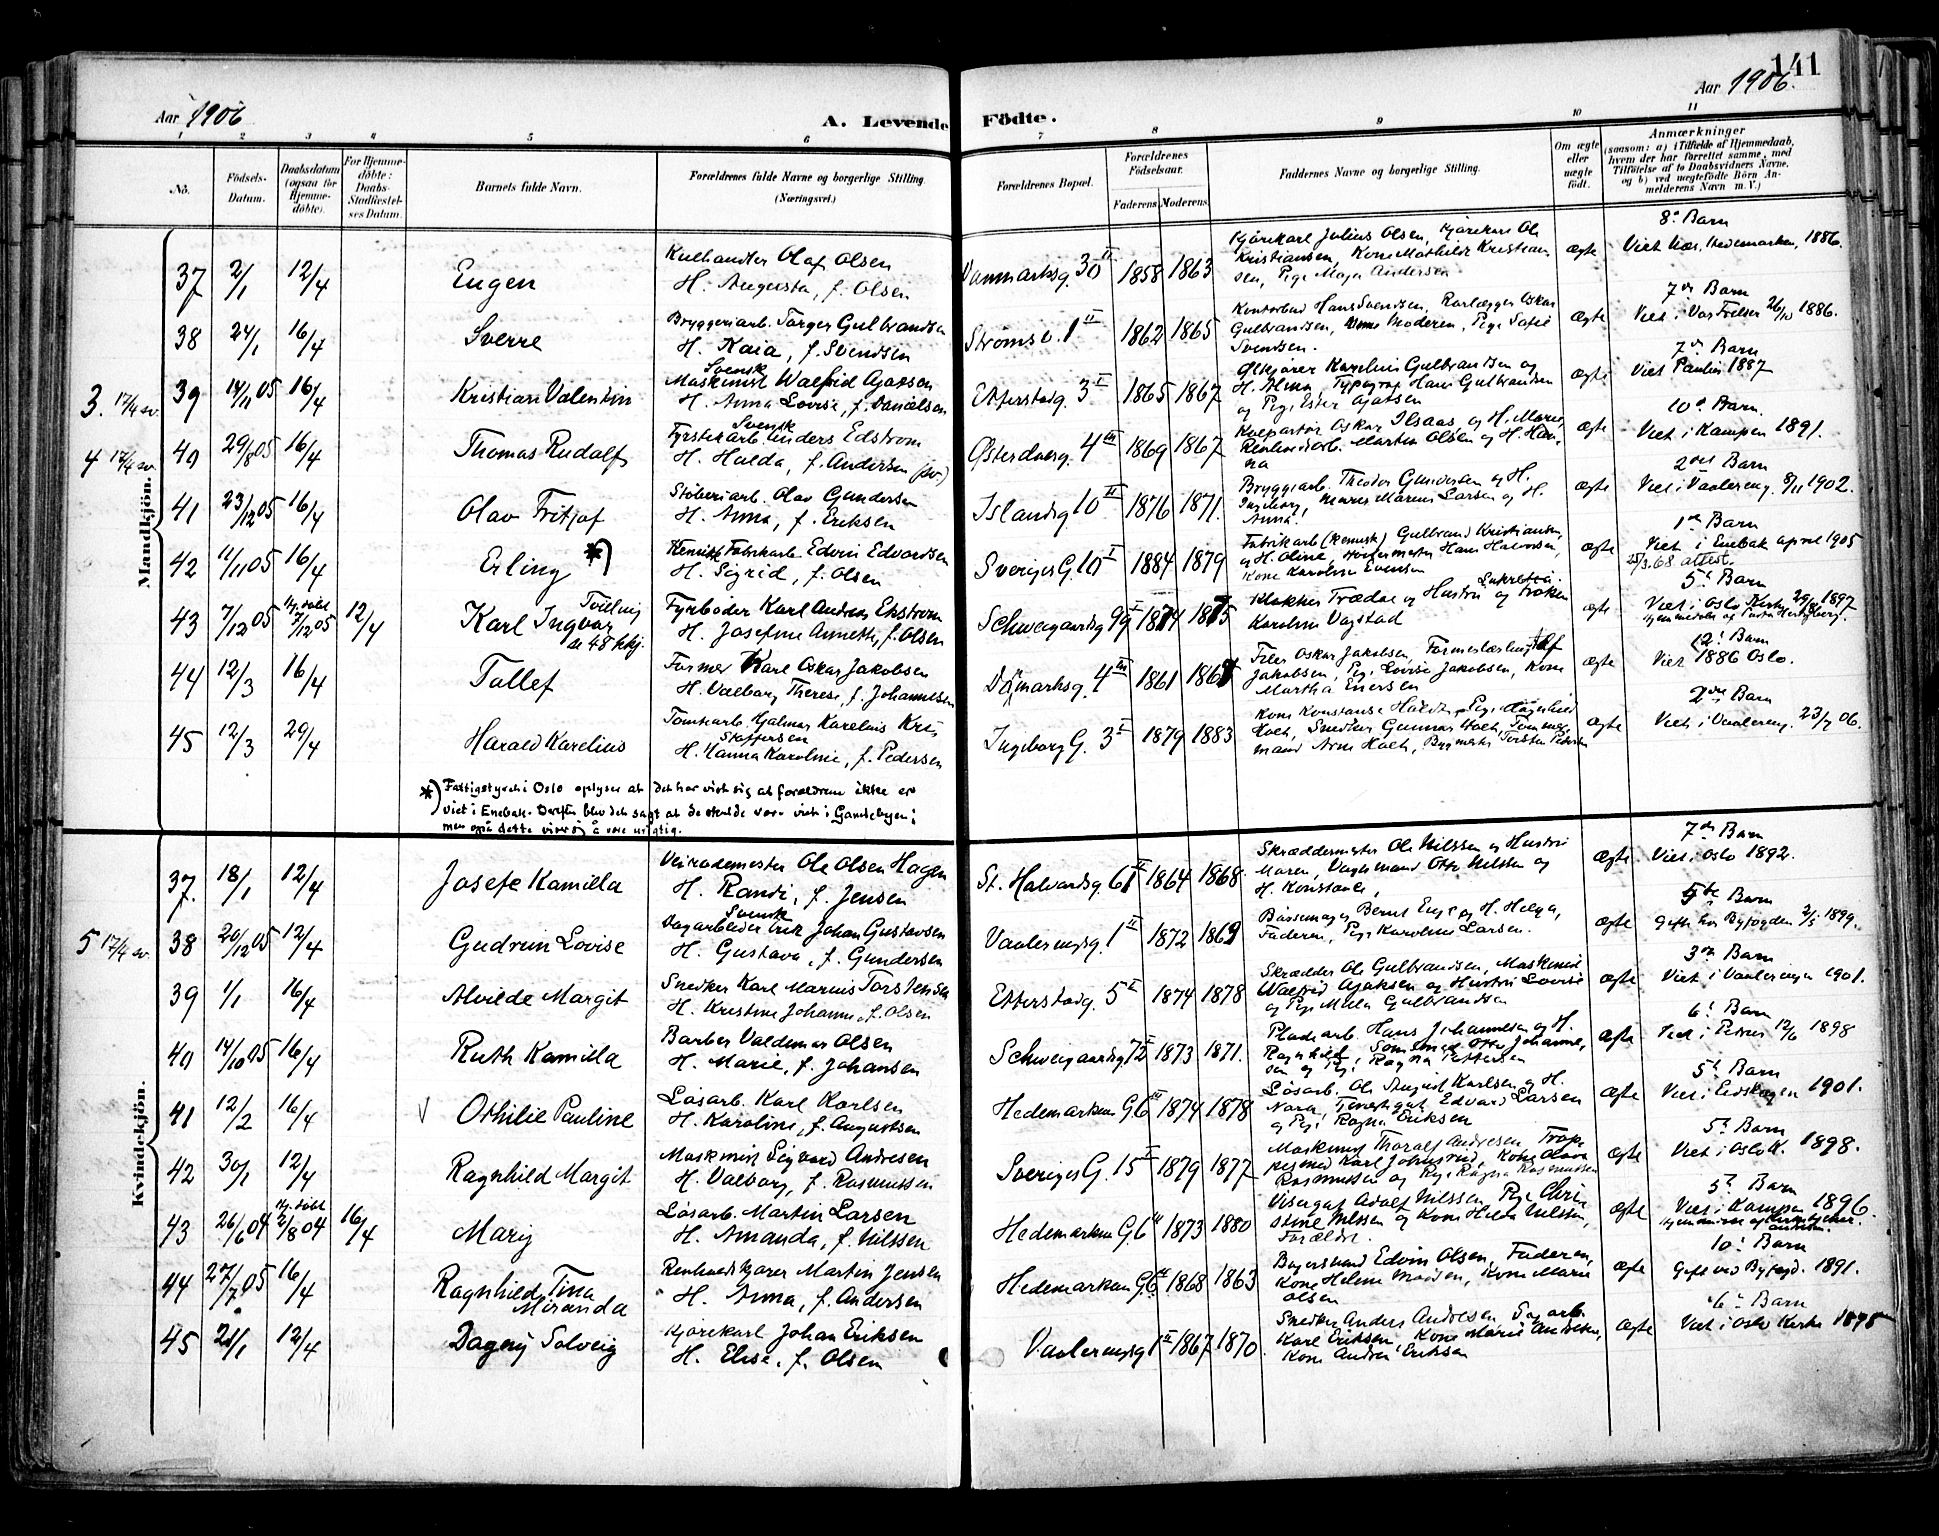 Aar 1906
A. Levende Födte.
Aar 1906.
141
1 2 3 4 5 6 7 8 9 10 11
No.
Födsels-Datum.
Daabsdatum (ogsaa for Hjemme-döbte).
For Hjemme-döbte: Daabs-Stadfæstel-ses Datum.
Barnets fulde Navn.
Forældrenes fulde Navne og borgerlige Stilling. (Næringsvei.)
Forældrenes Bopæl.
Forældrenes Födselsaar.
Faderens. Moderens.
Faddernes Navne og borgerlige Stilling.
Om ægte eller uægte födt.
Anmærkninger
(saasom: a) i Tilfælde af Hjemmedaab,
hvem der har forrettet samme, med
Tilföielse af to Daabsvidners Navne,
og b) ved uægtefödte Börn An-
melderens Navn m. V.)
Mandkjön.
37 2/1 12/4 Eugen
Kulhandler Olaf Olsen
H. Augusta, f. Olsen
Danmarksg. 30 II 1858 1863
Kjörekarl Julius Olsen, Kjörekarl Ole
Kristiansen, Kone Mathilde Kristian-
sen, Pige Maja Andersen
ægte
8de Barn
Viet Hedemarken, 1886.
38 24/1 16/4 Sverre
Bryggeriarb. Torger Gulbrandsen
H. Kaia, f. Svendsen
Strømsv. 1 II 1862 1865
Kontorbud Hans Svendsen, Rørlægger Oskar
Gulbrandsen, Moderen, Pige Sofie
Svendsen.
ægte
7de Barn
Viet i Vor Frelser 26/10 1886.
3. 17/4 sv.
39 14/11 05 16/4 Kristian Valentin
Svensk
Maskinist Walfrid Ajaxsen
H. Anna Lovise, f. Danielsen
Etterstadg. 3 I 1865 1867
Ølkjører Karelius Gulbrandsen og
H. Alma, Typograf Hans Gulbrandsen
og Pige Ester Ajaksen
ægte
7de Barn
Viet Paulus 1887
4 17/4 sv.
40 29/8 05 16/4 Thomas Rudolf
Svensk
Fyrstikarb. Anders Edstrøm
H. Hulda, f. Andersen (sv.)
Østerdalsg. 4 III 1869 1867
Kolportør Oskar Ilsaas, og H. Marie,
Renholdsarb. Martin Olsen og H. Han-
na
ægte
10de Barn.
Viet i Kampen 1891.
41 23/12 05 16/4 Olav Fritjof
Støberiarb. Olav Gundersen
H. Anna, f. Eriksen
Islandsg 10 II 1876 1871.
Bryggeriarb. Theodor Gundersen og H.
Ingeborg, Murer Marius Larsen og H.
Anna.
ægte
2det Barn
Viet i Vaalereng 8/11 1902.
42 11/11 05 16/4 Erling *)
Kemisk Fabrikarb. Edvin Edvardsen
H. Sigrid, f. Olsen
Sveriges G. 10 I 1884 1879
Fabrikarb (kemisk) Gulbrand Kristiansen
og H. Oline, Hans Halvorsen,
Kone Karoline Evensen
ægte
1ste Barn
Viet i Enebak april 1905
25/3.68 attest.
43 7/12 05 Hj. døbt 7/12 05 12/4
Karl Ingvar Tvilling
til 48 kvkj.
Fyrbøder Karl Anders Ekstrøm
H. Josefine Annette, f. Olsen
Schweigaardsg 99 I 1874 1875
Klokker Trædal og Hustru og Frøken Lukretia.
Karoline Vagstad
ægte
5t Barn
Viet i Oslo Kirke 29/ 1897
44 12/3 16/4 Tallef
Former Karl Oskar Jakobsen
H. Valborg Therese, f. Johannesen
Danmarksg. 4 III 1861 1867
Filer Oskar Jakobsen, Formerlærling Alf
Jakobsen, Pige Lovise Jakobsen, Kone
Martha Enersen
ægte
12t Barn
Viet 1886 Oslo.
45 12/3 29/4 Harald Karelius
Tomtearb. Hjalmar Karelius Kris-
Stoffersen
H. Hanna Karoline, f. Pedersen
Ingeborg G. 3 I 1879 1883
Kone Konstanse Holth, Pige Ragnhild
Holt, Snedker Gunnar Holt, Tømmer-
mand Arne Holt, Bygmester Torsten Pedersen
ægte
2det Barn
Viet i Vaalereng. 23/7 06.
*) Fattigstyret i Oslo oplyser at det har vist sig at forældrene ikke er
viet i Enebak. Derefter blev det sagt at de skulde være viet i Gamlebyen;
men også dette viser sig å være uriktig.
Kvindekjön.
37. 18/1 12/4 Josefe Kamilla
Veivademester Ole Olsen Hagen
H. Randi, f. Jensen
St. Halvardsg. 61 II 1864 1868
Skræddermester Ole Nilssen og Hustru
Maren, Vagtmand Otto Nilssen og
H. Konstanse,
ægte
7de Barn
Viet i Oslo 1892.
5 17/4 sv.
38 20/12 05 12/4 Gudrun Lovise
Svensk
Dagarbeider Erik Johan Gustavsen
H. Gustava, f. Gundersen
Vaalerengsg. 1 II 1872 1869
Børsemager Bernt Enge og H. Helga,
Faderen, Pige Karoline Larsen.
ægte
5te Barn
Gift hos Byfogden 2/5 1899.
39 1/1 16/4 Alvilde Margit
Snedker Karl Marius Torstensen
H. Kristine Johanne, f. Olsen
Etterstadg. 5 I 1874 1878
Skrædder Ole Gulbrandsen, Maskinist
Walfrid Ajaksen og Hustru Lovise
og Pige Gulbrandsen
ægte
3de Barn
Viet i Vaalerengen 1901.
40 14/10 05 16/4 Ruth Kamilla
Barber Valdemar Olsen
H. Marie, f. Johansen
Schweigaardsg 72 1873 1871.
Pladearb. Hans Johannesen og H.
Ragnhild, Otto Johanne-
sen og Pige Ragna Pettersen
ægte
6t Barn
Viet i Petrus 12/6 1898
41 12/2 16/4 V Othilie Pauline
Løsarb. Karl Karlsen
H. Karoline, f. Augustsen
Hedemarkens G. 6 III 1874 1878
Løsarb. Ole August Karlsen og H.
Nora, Edvard Larsen
og Pige Ragna Eriksen
ægte
5t Barn
Viet i Eidskogen 1901.
42 30/1 12/4 Ragnhild Margit
Maskinist Sigvard Andresen
H. Valborg, f. Rasmussen
Sveriges G. 15 I 1879 1877
Maskinist Thoralf Andresen, Trop-
Karl Johnsrud, Kone Olava
Rasmussen og Pige Ragna Rasmussen
ægte
5t Barn
Viet i Oslo K. 1898.
43 26/6 04 Hj. døbt 2/8 04 16/4 Marij
Løsarb. Martin Larsen
H. Amanda, f. Nilssen
Hedemarkens G. 6 II 1873 1880
Visergut Adolf Nilssen, Pige Chri-
stine Nilssen og Kone Hilda Nilssen,
Forældre.
ægte
5t Barn
Viet i Kampen 1896.
44 27/7 05 16/4 Ragnhild Tina
Miranda
Renholdskjører Martin Jensen
H. Anna, f. Andersen
Hedemarkens G. 6 III 1868 1863
Bogersvend Edvin Olsen, Faderen,
Kone Helene Madsen, Kone Marie
Olsen
ægte
10t Barn
Gift ved Byfogd. 1891.
45 21/1 12/4 Dagny Solveig
Kjørekarl Johan Eriksen
H. Elise, f. Olsen
Vaalerengsg 1 II 1867 1870.
Snedker Anders Andresen, Sagarb.
Karl Eriksen, Kone Marie Andresen,
Kone Andrea Eriksen
ægte
6t Barn
Viet i Oslo Kirke 1895